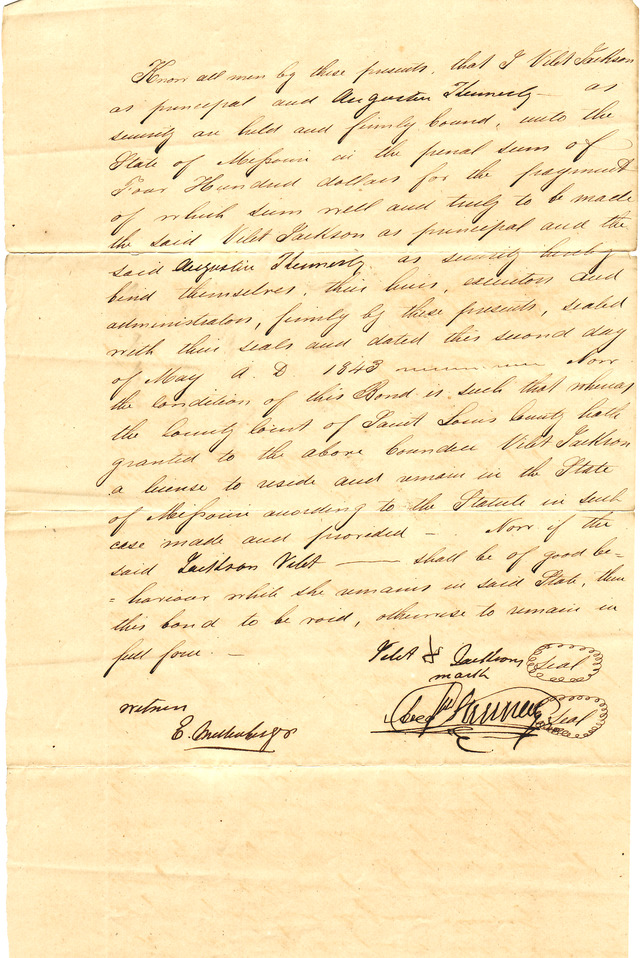 Know all men by these presents, that I Vilet Jackson
as principal and Augustin Kennerly as
security are held and firmly bound, unto the
State of Missouri in the penal sum of
Four Hundred dollars for the payment
of which sum well and truly to be made
the said Vilet Jackson as principal and the
said Augustin Kennerly as security hereby
bind themselves, their heirs, executors and
administrators, firmly by these presents, sealed
with their seals and dated this second day
of May A. D 1843 Now
the condition of this Bond is such that whereas
the County Court of Saint Louis County hath
granted to the above bounden Vilet Jackson
a license to reside and remain in the State
of Missouri according to the Statute in such
case made and provided - Now if the
said Jackson Vilet shall be of good be-
=haviour while she remains in said State, then
this bond to be void, otherwise to remain in
full force. -
Vilet Jackson Seal
mark
Seal
witness
E.